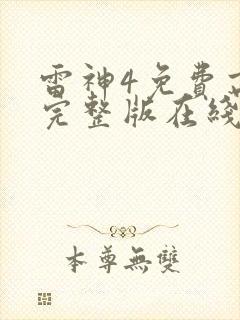 雷神4免費
完整版在綫
本尊無雙